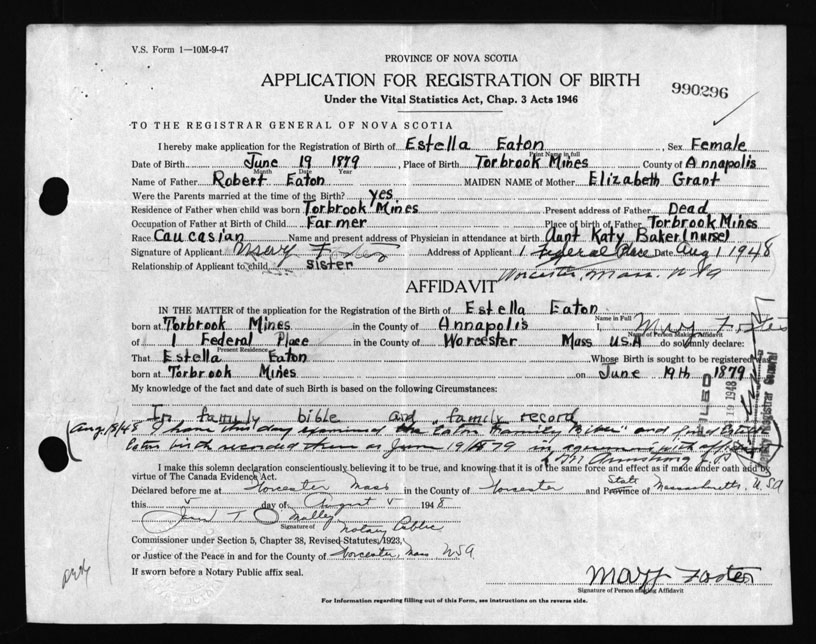 V.S. Form 1—10M-9-47
PROVINCE OF NOVA SCOTIA
APPLICATION FOR REGISTRATION OF BIRTH
990296
Under the Vital Statistics Act, Chap. 3 Acts 1946
TO THE REGISTRAR GENERAL OF NOVA SCOTIA
I hereby make application for the Registration of Birth of Estella Eaton, Sex Female
Print Name in full
Date of Birth June 19 1879, Place of Birth Torbrook Mines County of Annapolis
Month Date Year
Name of Father Robert Eaton MAIDEN NAME of Mother Elizabeth Grant
Were the Parents married at the time of the Birth? yes
Residence of Father when child was born Torbrook Mines Present address of Father Dead
Occupation of Father at Birth of Child Farmer Place of birth of Father Torbrook Mines
Race Caucasian Name and present address of Physician in attendance at birth Aunt Katy Baker (nurse)
Signature of Applicant Mary Foster Address of Applicant 1 Federal Place Date Aug 1 1948
Relationship of Applicant to child sister Worcester, Mass. USA
AFFIDAVIT
IN THE MATTER of the application for the Registration of the Birth of Estella Eaton
Name in Full
born at Torbrook Mines in the County of Annapolis I, Mary Foster
Name of Person Making Affidavit
of 1 Federal Place in the County of Worcester Mass USA do solemnly declare:
Present Residence
That Estella Eaton Whose Birth is sought to be registered was
born at Torbrook Mines on June 19th 1879
My knowledge of the fact and date of such Birth is based on the following Circumstances:
In family bible and family record
Aug. 18/48 I have this day examined the "Eaton Family Bible" and find Estella
Eaton birth recorded there as June 19/1879 in agreement with
Armstrong J.P.
FILED
19 1948
Deputy Registrar General
I make this solemn declaration conscientiously believing it to be true, and knowing that it is of the same force and effect as if made under oath and by
virtue of The Canada Evidence Act.
Declared before me at Worcester Mass in the County of Worcester and Province of Massachusetts, USA
State
this 5 day of August 5 1948
T O'Malley
Signature of notary Public
Commissioner under Section 5, Chapter 38, Revised Statutes, 1923,
or Justice of the Peace in and for the County of Worcester, Mass USA
If sworn before a Notary Public affix seal.
Mary Foster
Signature of Person making Affidavit
For Information regarding filling out of this Form, see instructions on the reverse side.